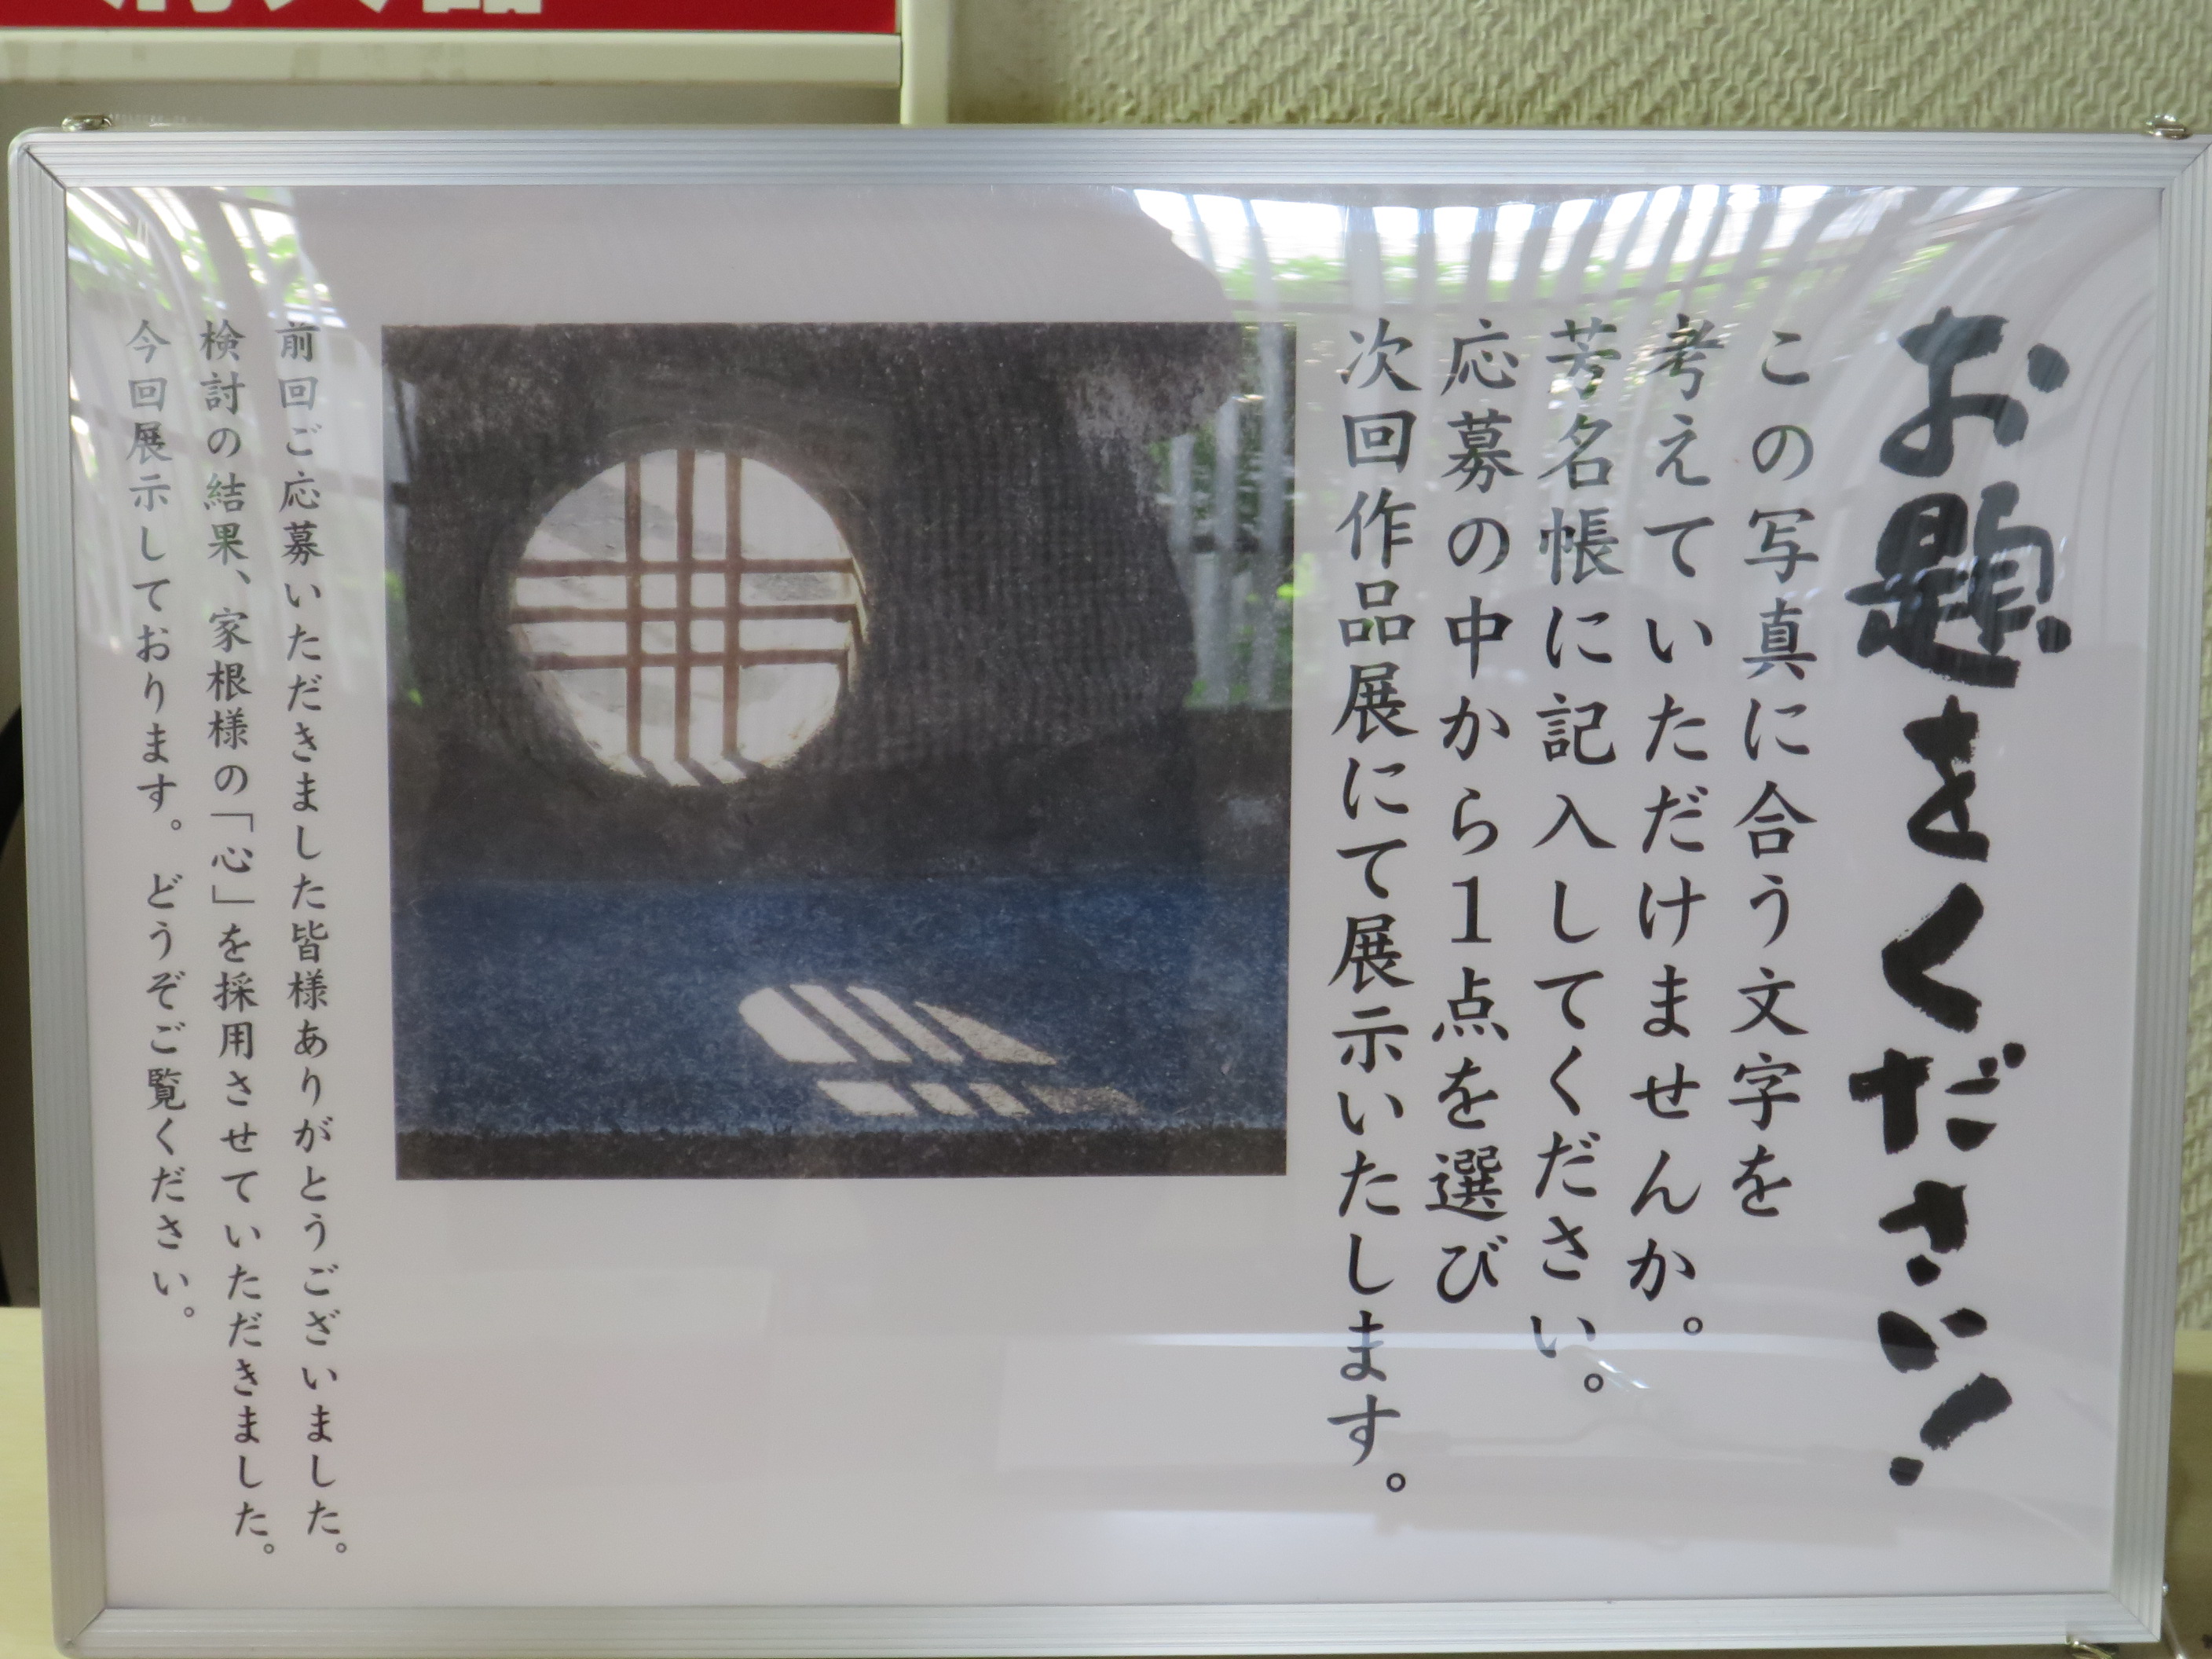 消火器
お題をください!
この写真に合う文字を
考えていただけませんか。
芳名帳に記入してください。
応募の中から1点を選び
次回作品展にて展示いたします。
前回ご応募いただきました皆様ありがとうございました。
検討の結果、家根様の「心」を採用させていただきました。
今回展示しております。どうぞご覧ください。